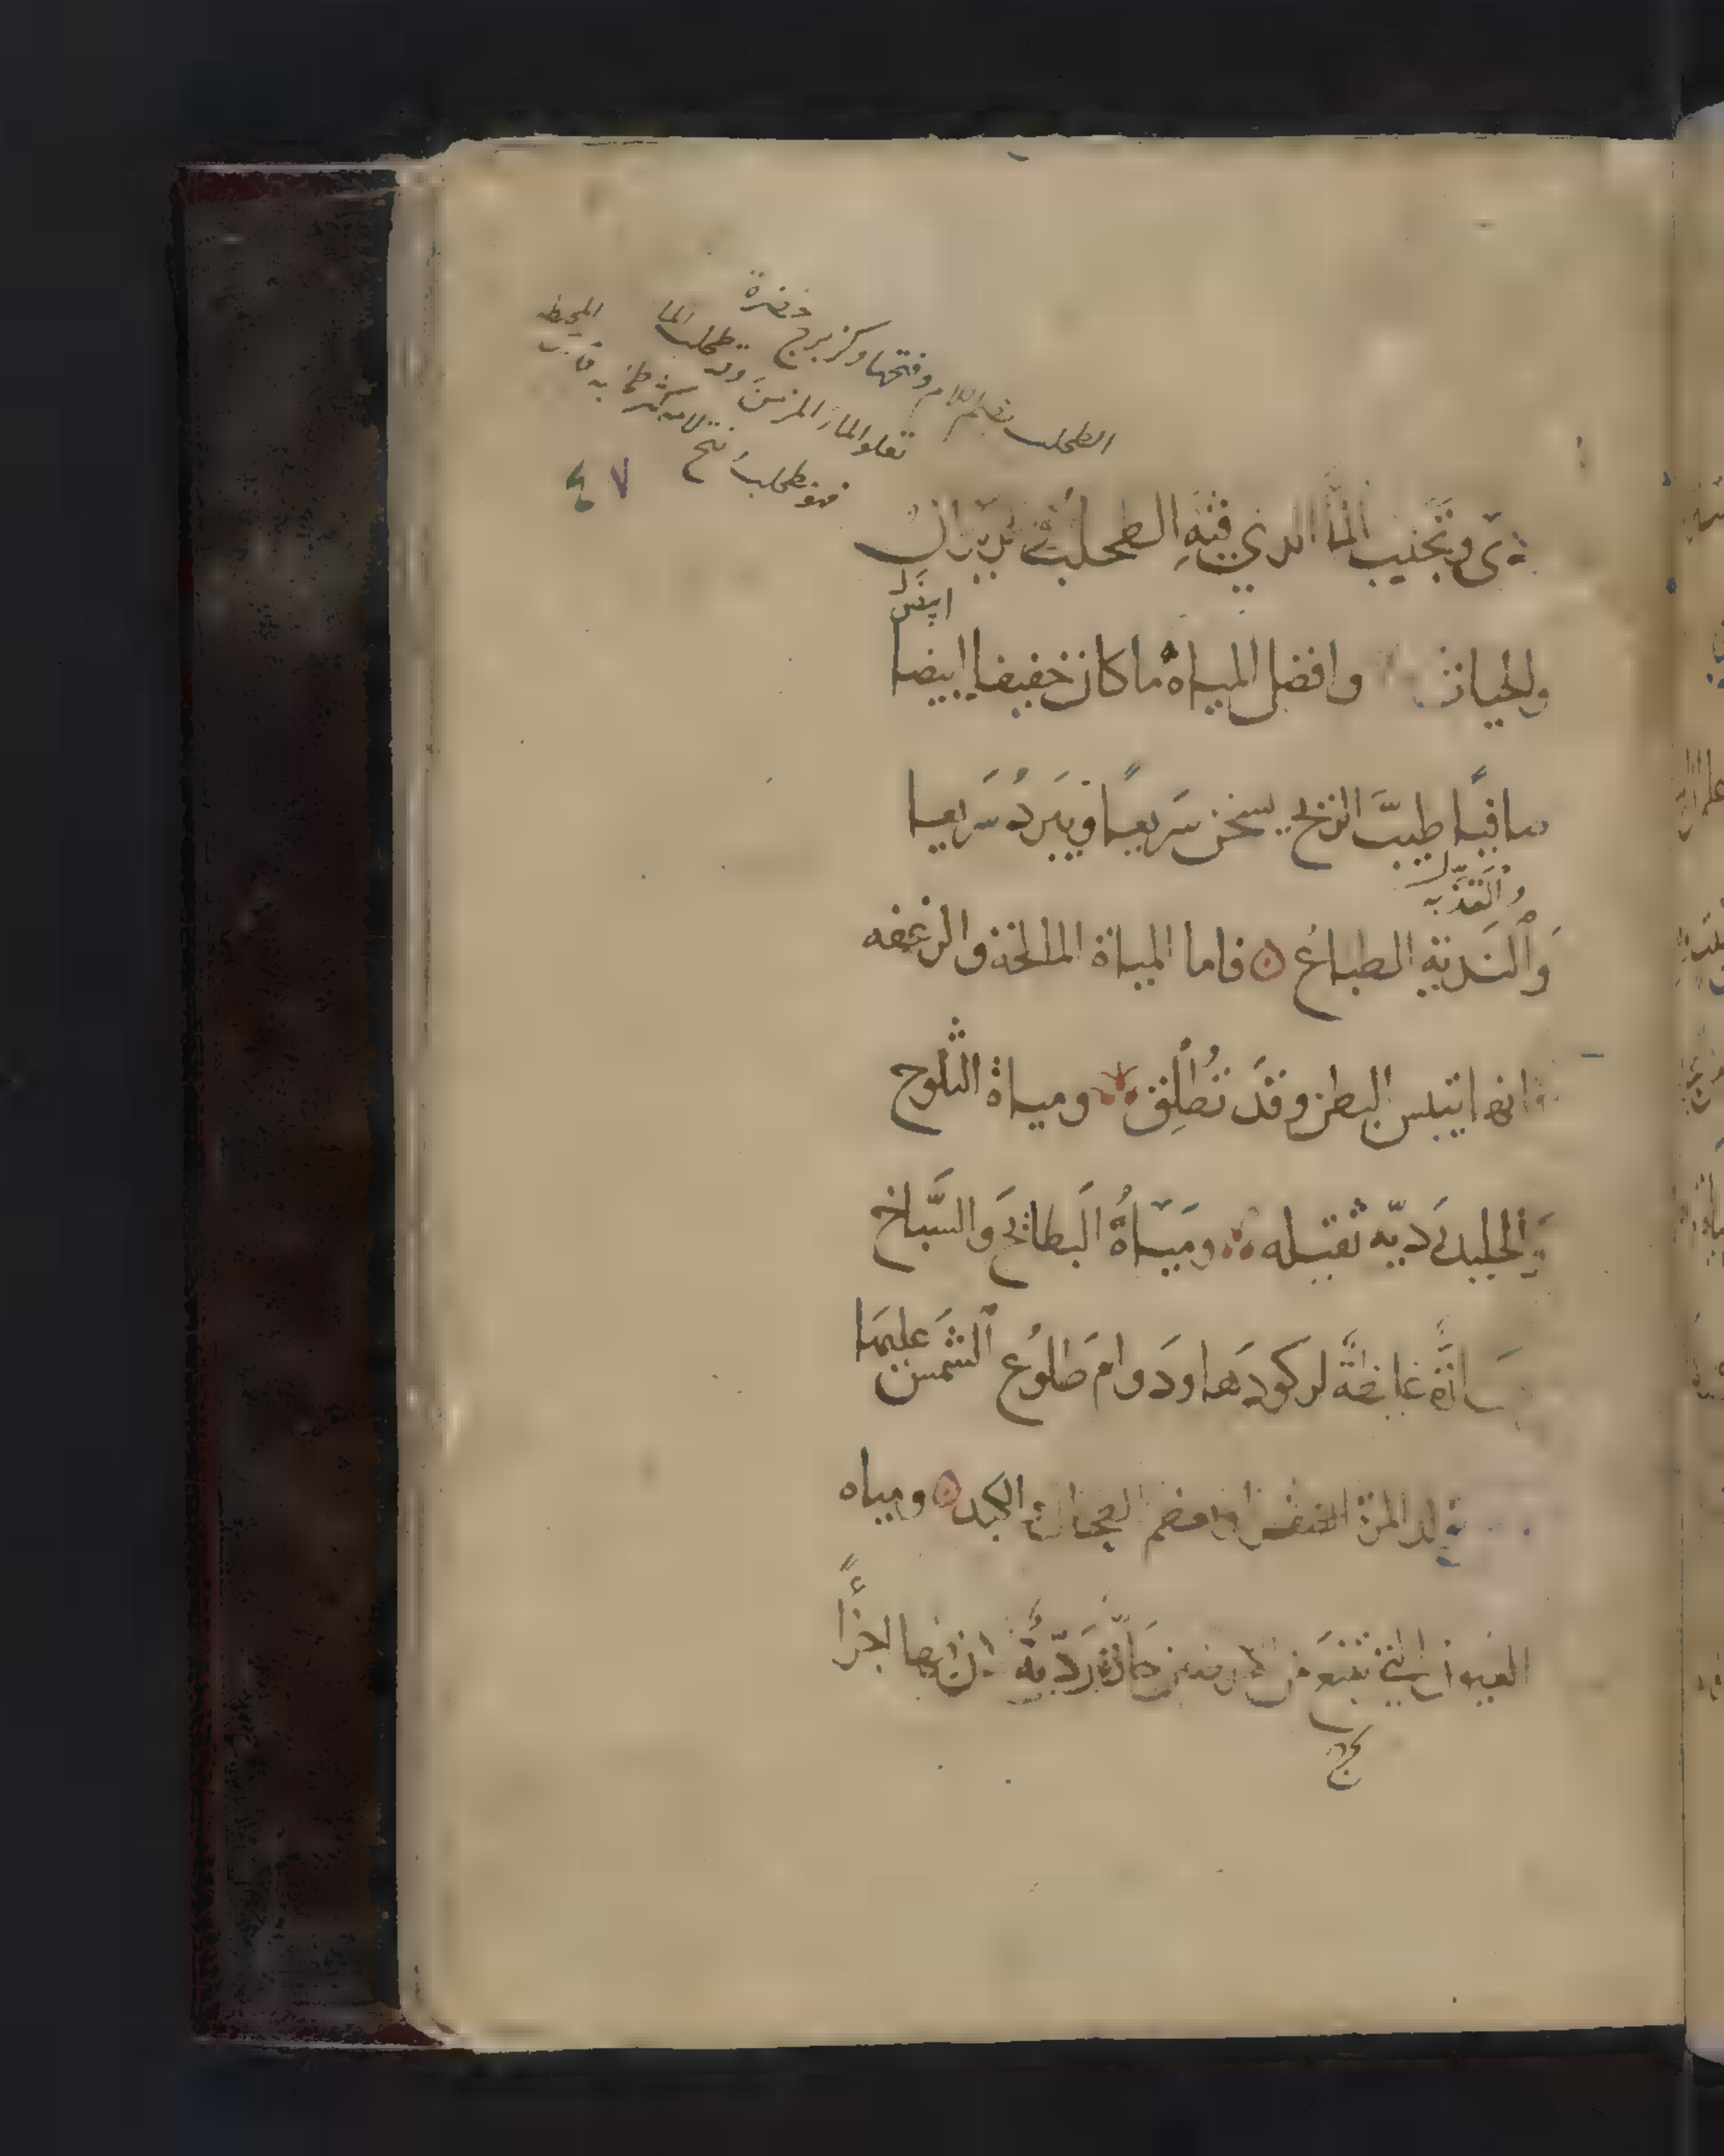 الطحلب بضم اللام وفتحها وكزبرج خضرة
تعلو الماء المزمن وقد طحلب الماء المحيط
فهو مطحلب بفتح لامه كثر طحلبه
٤٧
وتجنب الما الذي فيه الطحلب
ابيض
والحيات وافضل المياه ما كان خفيفا ابيضا
صافيا طيب الريح يسخن سريعا ويبرد سريعا
والعذبه
الطباع فاما المياة المالحة والزعفه
فانها تيبس البطن وقد تطلق ومياة الثلوج
والجليد رديه ثقيله ومياة البطائح والسباخ
حارة غليظة لركودها ودوام طلوع الشمس عليها
تولد المرة الصفرا وتعظم الطحال والكبد ومياه
العيون التي تنبع من حارة ردية اجزأ